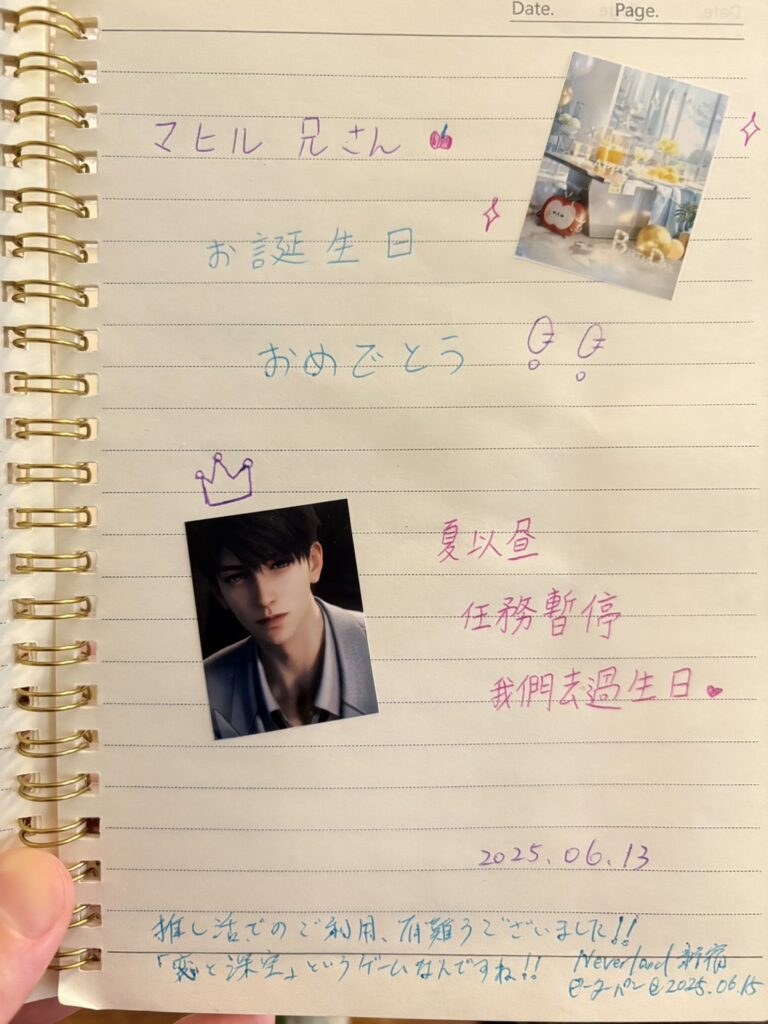 Date. Page.
マヒル 兄さん
お誕生日
おめでとう
BIRTHDAY
夏以昼
任務暫停
我們去過生日
2025.06.13
推し活でのご利用、有難うございました!!
「恋と深空」というゲームなんですね!!
Neverland 新宿
ピーターパン 2025.06.15